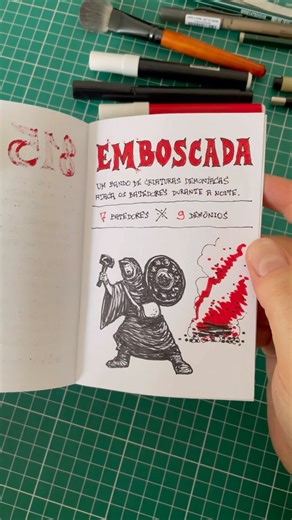 EMBOSCADA
UM BANDO DE CRIATURAS DEMONÍACAS
ATACA OS BATEDORES DURANTE A NOITE.
7 BATEDORES X 9 DEMÔNIOS